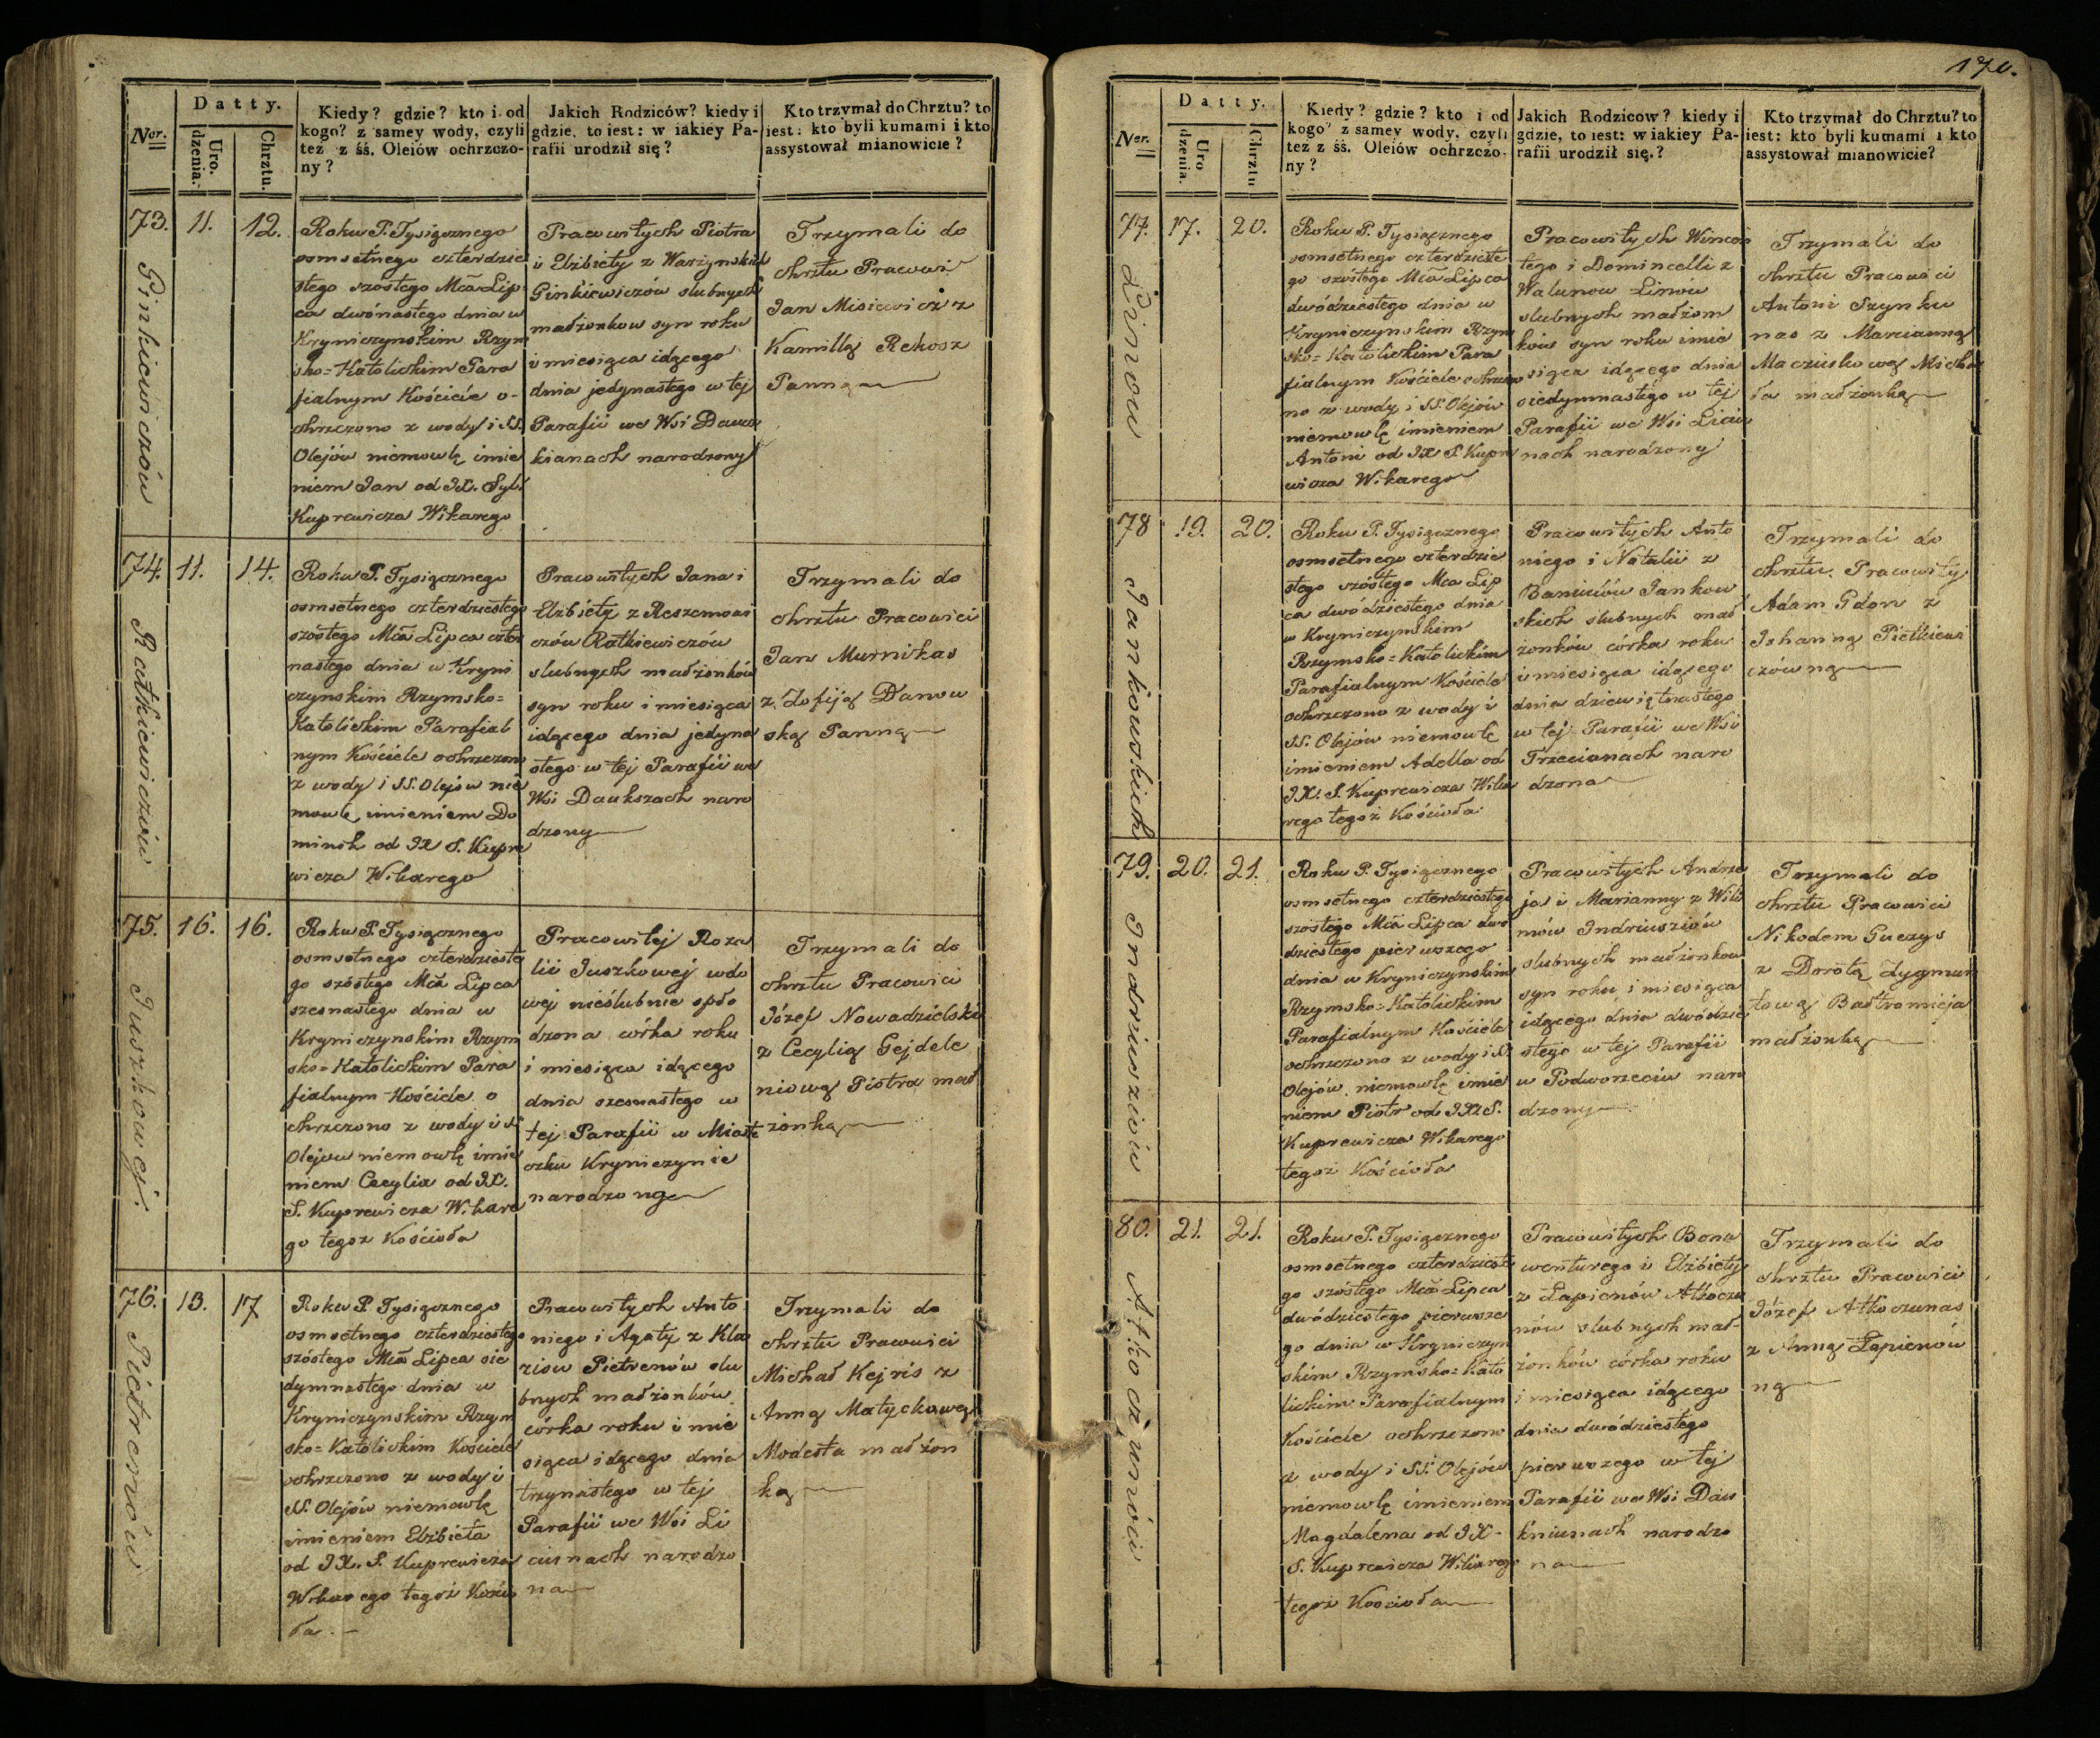 170.
Ner.
Datty.
Uro.
dzenia.
Chrztu.
Kiedy? gdzie? kto i od
kogo? z samey wody, czyli
też z śś. Oleiów ochrzczo-
ny?
Jakich Rodziców? kiedy i
gdzie, to iest: w iakiey Pa-
rafii urodził się?
Kto trzymał do Chrztu? to
iest: kto byli kumami i kto
assystował mianowicie?
73.
Ginkiewiczów
11.
12.
Roku P. Tysiącznego
osmsetnego czterdzie
stego szóstego Mca Lip
ca dwónastego dnia w
Kryniczynskim Rzym
sko=Katolickim Para
fialnym Kościele o-
chrzczono z wody i SS.
Olejów niemowlę imie
niem Jan od JX. Syl.
Kuprewicza Wikarego
Pracowitych Piotra
i Elzbiety z Warzynskich
Ginkiewiczów slubnych
małżonkow syn roku
i miesiąca idącego
dnia jedynastego w tej
Parafii we Wsi Dauk
kianach narodzony
Trzymali do
chrztu Pracowi
Jan Misiewicz z
Kamillą Rekosz
Panną
74.
Ratkiewiczów
11.
14.
Roku P. Tysiącznego
osmsetnego czterdziestego
szóstego Mca Lipca czter
nastego dnia w Kryni
czynskim Rzymsko=
Katolickim Parafial
nym Kościele ochrzczono
z wody i SS. Olejów nie
mowlę imieniem Do
minik od JX S. Kupre
wicza Wikarego
Pracowitych Jana i
Elzbiety z Reszemowi
czów Ratkiewiczów
slubnych małżonków
syn roku i miesiąca
idącego dnia jedyna
stego w tej Parafii we
Wsi Daukszach naro
dzony
Trzymali do
chrztu Pracowici
Jan Murnikas
z Zofiją Danow
ską Panną
75.
Juszkowej.
16.
16.
Roku P. Tysiącznego
osmsetnego czterdzieste
go szóstego Mca Lipca
szesnastego dnia w
Kryniczynskim Rzym
sko=Katolickim Para
fialnym Kościele o
chrzczono z wody i SS
Olejow niemowlę imie
niem Cecylia od JX.
S. Kuprewicza Wikare
go tegoż Kościoła
Pracowitej Roza
lii Juszkowej wdo
wej nieślubnie spło
dzona córka roku
i miesiąca idącego
dnia szesnastego w
tej Parafii w Miaste
czku Kryniczynie
narodzoną
Trzymali do
chrztu Pracowici
Józef Nowadzielski
z Cecylią Gejdele
niową Piotra mał
żonką
76.
Pietrenów
13.
17
Roku P. Tysiącznego
osmsetnego czterdziestego
szóstego Mca Lipca sie
dymnastego dnia w
Kryniczynskim Rzym
sko=Katolickim Kościele
ochrzczono z wody i
SS. Olejów niemowlę
imieniem Elzbieta
od JX. S. Kuprewicza
Wikarego tegoż Kościo
ła.
Pracowitych Anto
niego i Agaty z Kla
zisw Pietrenów slu
bnych małżonków
córka roku i mie
siąca idącego dnia
trzynastego w tej
Parafii we Wsi Li
ciunach narodzo
na
Trzymali do
chrztu Pracowici
Michał Kejris z
Anną Matyckową
Modesta małżon
ką
Ner.
Datty.
Uro
dzenia.
Chrztu
Kiedy? gdzie? kto i od
kogo? z samey wody, czyli
też z śś. Oleiów ochrzczo-
ny?
Jakich Rodziców? kiedy i
gdzie, to iest: w iakiey Pa-
rafii urodził się?
Kto trzymał do Chrztu? to
iest: kto byli kumami i kto
assystował mianowicie?
77.
Linow
17.
20.
Roku P. Tysiącznego
osmsetnego czterdzieste
go szóstego Mca Lipca
dwódziestego dnia w
Kryniczynskim Rzym
sko=Katolickim Para
fialnym Kościele ochrzczo
no z wody i SS. Olejów
niemowlę imieniem
Antoni od JX S. Kupre
wicza Wikarego
Pracowitych Wincen
tego i Domincelli z
Walunow Linow
slubnych małżon
ków syn roku i mie
siąca idącego dnia
siedymnastego w tej
Parafii we Wsi Liciu
nach narodzony
Trzymali do
chrztu Pracowici
Antoni Szynku
nas z Marcianną
Maczuskową Micha
ła małżonką
78
Jankowskich
19.
20.
Roku P. Tysiącznego
osmsetnego czterdzie
stego szóstego Mca Lip
ca dwódziestego dnia
w Kryniczynskim
Rzymsko=Katolickim
Parafialnym Kościele
ochrzczono z wody i
SS. Olejów niemowlę
imieniem Adella od
JX. S. Kuprewicza Wika
rego tegoż Kościoła
Pracowitych Anto
niego i Natalii z
Baniulów Jankow
skich slubnych mał
żonków córka roku
i miesiąca idącego
dnia dziewiętnastego
w tej Parafii we Wsi
Trzecianach naro
dzona
Trzymali do
chrztu Pracowity
Adam Gdon z
Johanną Pietkiewi
czówną
79.
Indriusziów
20.
21.
Roku P. Tysiącznego
osmsetnego czterdziestego
szóstego Mca Lipca dwó
dziestego pierwszego
dnia w Kryniczynskim
Rzymsko=Katolickim
Parafialnym Kościele
ochrzczono z wody i SS
Olejów niemowlę imie
niem Piotr od JX S.
Kuprewicza Wikarego
tegoż Kościoła
Pracowitych Andrze
ja i Marianny z Wili
mów Indriusziów
slubnych małżonkow
syn roku i miesiąca
idącego dnia dwódzie
stego w tej Parafii
w Podworzeciu naro
dzony
Trzymali do
chrztu Pracowici
Nikodem Guczys
z Dorotą Zygmun
tową Bałtromieja
małżonką
80.
Ałkoczunów
21.
21.
Roku P. Tysiącznego
osmsetnego czterdzieste
go szóstego Mca Lipca
dwódziestego pierwsze
go dnia w Kryniczyn
skim Rzymsko=Kato
lickim Parafialnym
Kościele ochrzczono
z wody i SS. Olejów
niemowlę imieniem
Magdalena od JX-
S. Kuprewicza Wikarego
tegoż Kościoła
Pracowitych Bona
wenturego i Elzbiety
z Łapienów Ałkoczu
nów slubnych mał-
żonków córka roku
i miesiąca idącego
dnia dwódziestego
pierwszego w tej
Parafii we Wsi Dau
kniunach narodzo
na
Trzymali do
chrztu Pracowici
Józef Ałkoczunas
z Anną Łapienów
ną